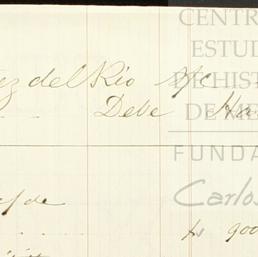 CENTR
ESTUD
DE HIST
DE ME
FUNDA
Carlos
ez del Rio
Debe Ha
c/ de
900